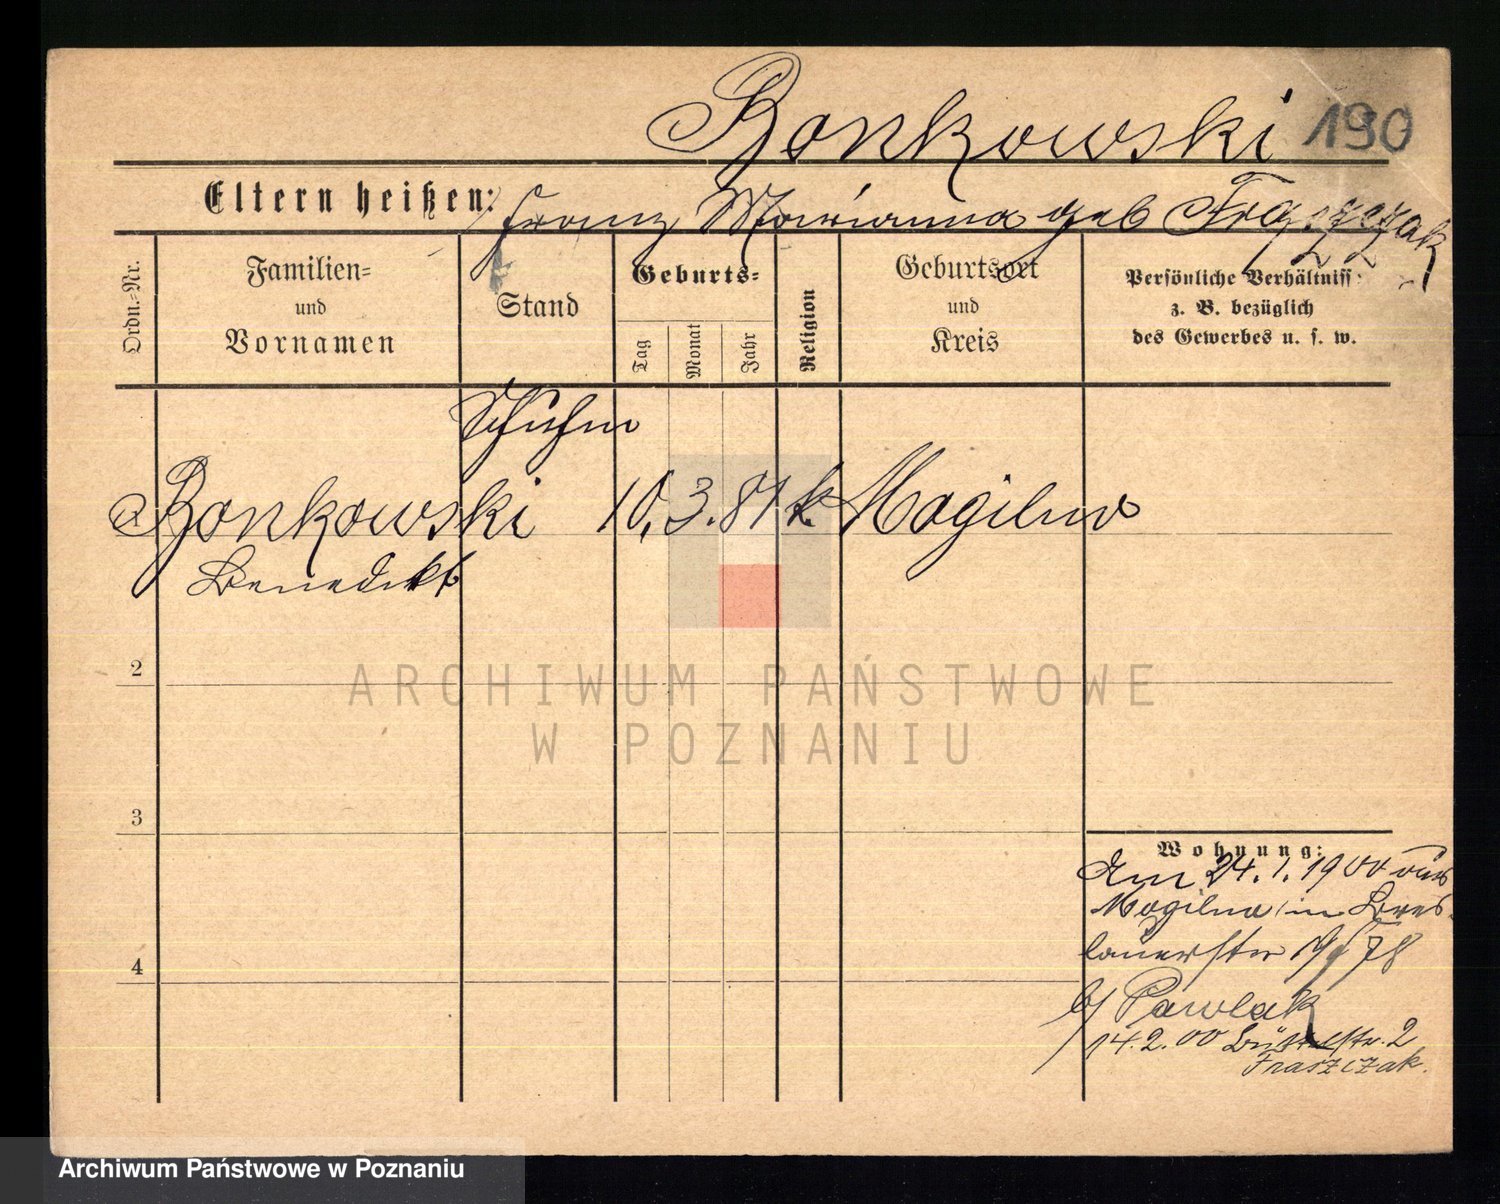 Bonkowski 190
Eltern heißen: Franz Marianna geb Fraszczak
Ordn.=Nr.
Familien=
und
Vornamen
Stand
Geburts=
Tag
Monat
Jahr
Religion
Geburtsort
und
Kreis
Persönliche Verhältniss
z. B. bezüglich
des Gewerbes u. s. w.
Schuhm
Bonkowski 10. 3. 81 k Mogilno
Benedikt
2
3
4
ARCHIWUM PAŃSTWOWE
W POZNANIU
Wohnung:
Am 24. 1. 1900 aus
Mogilno in Bres-
lauerstr 19/78
b/ Pawlak
14. 2. 00 str. 2
Fraszczak.
Archiwum Państwowe w Poznaniu